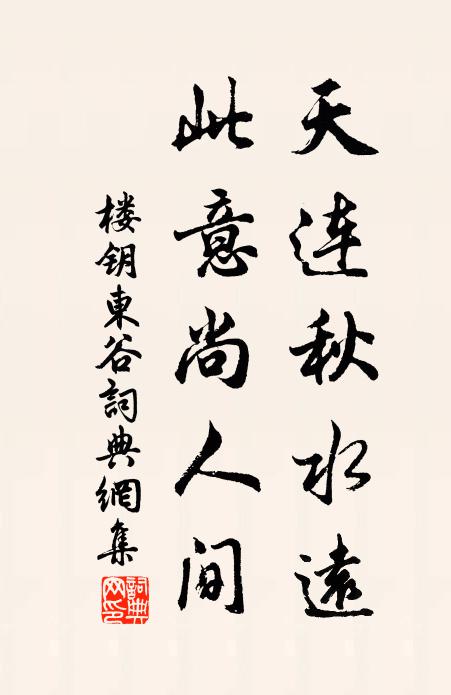 天连秋水遠
此意尚人间
楼钥東谷詞典網集
詞典網印